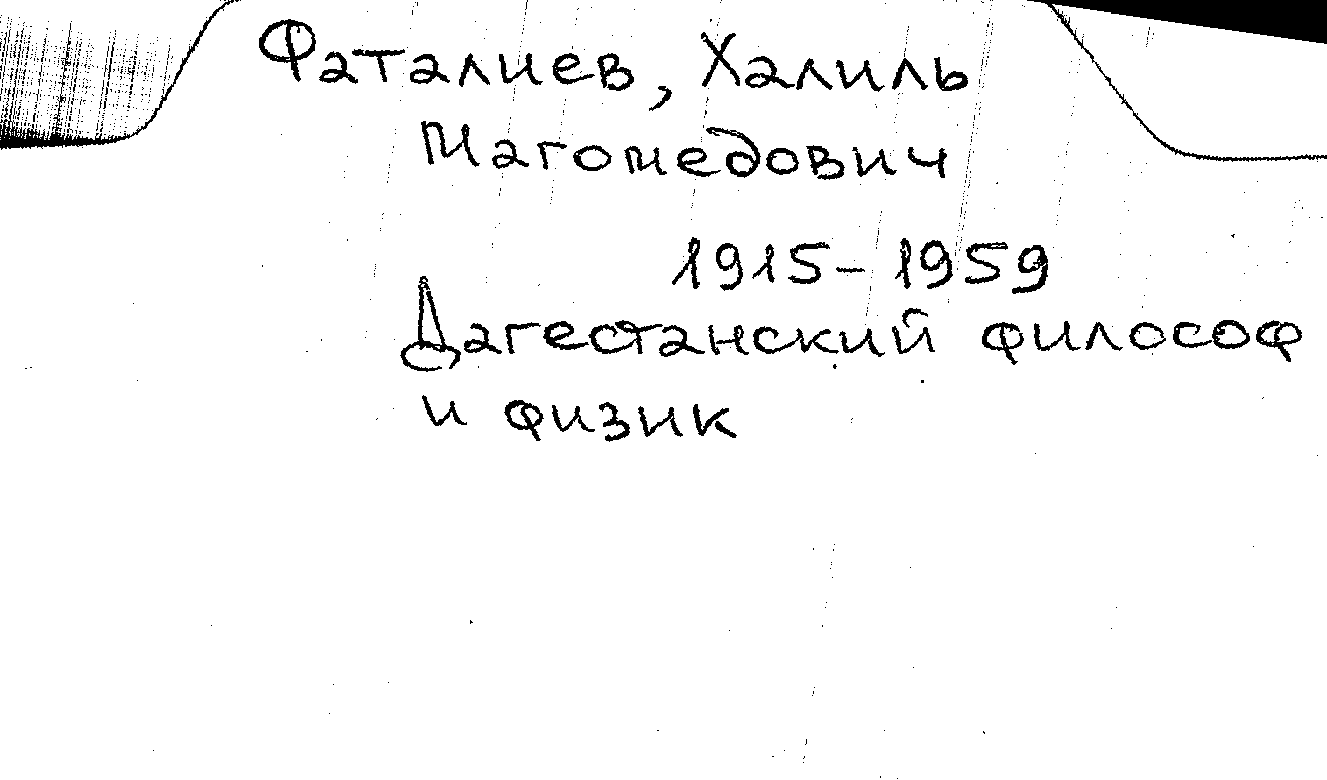 Фаталиев, Халиль
Магомедович
1915-1959
Дагестанский философ
и физик